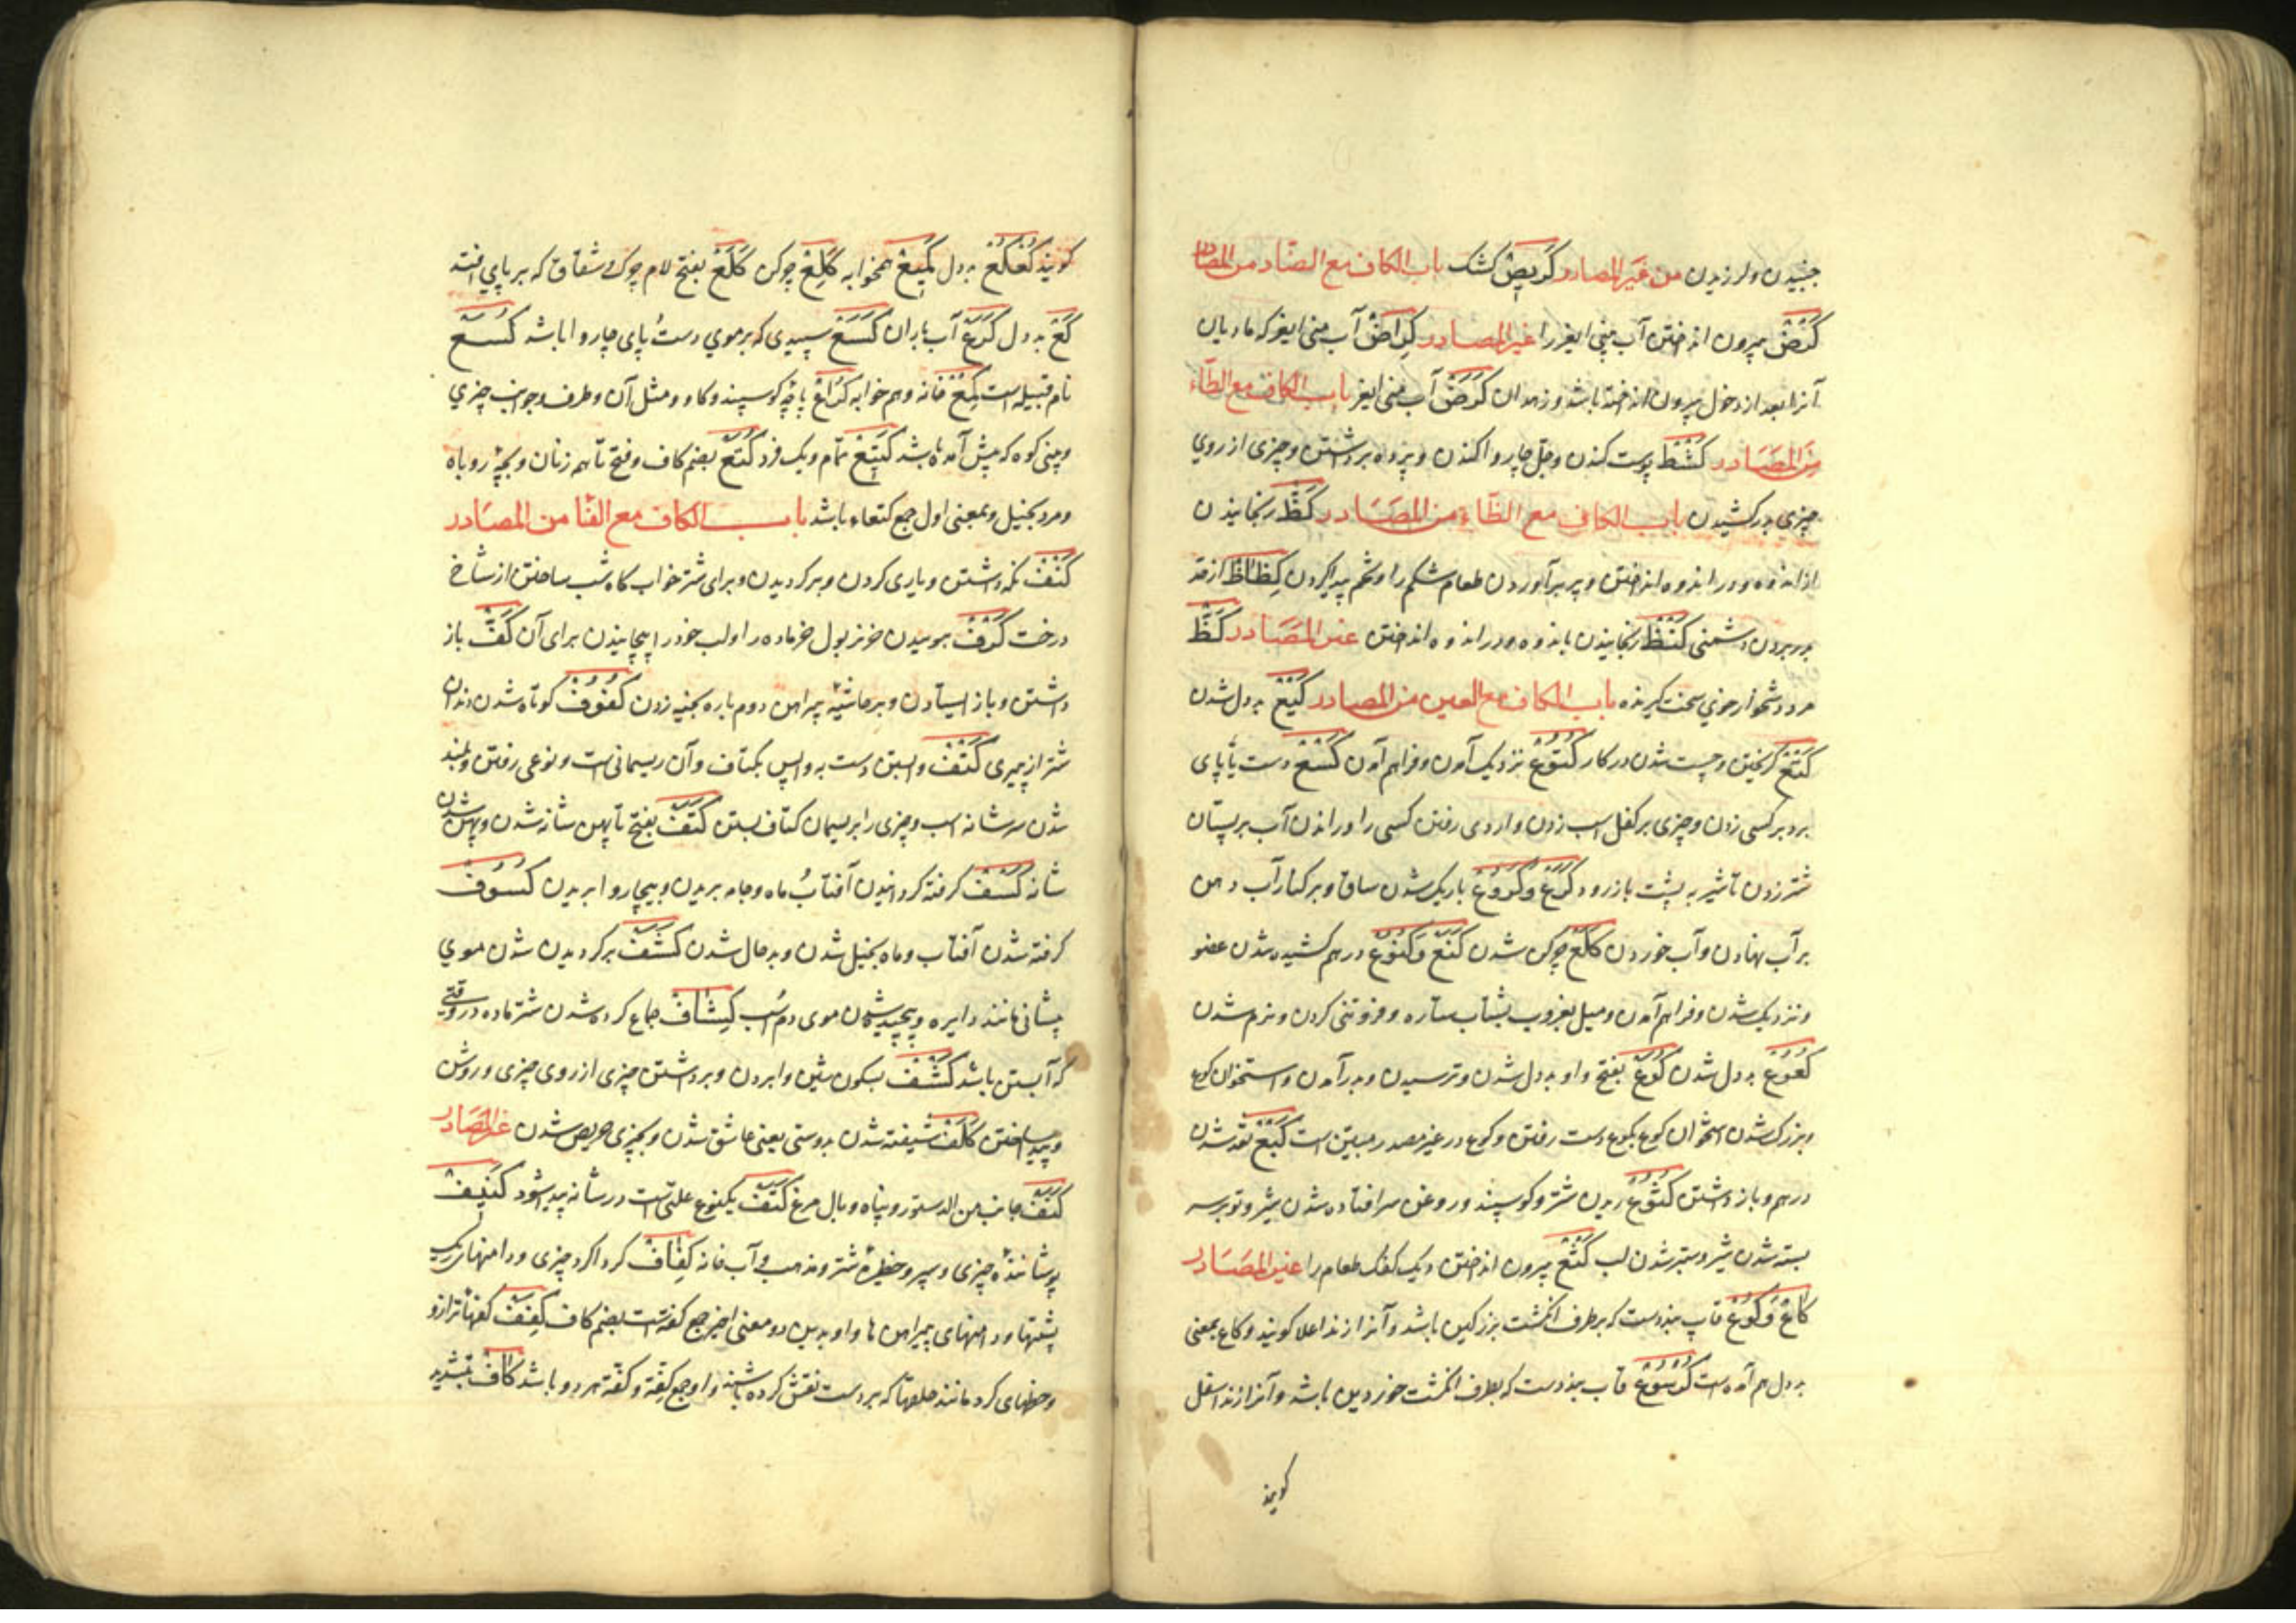 جنبیدن و لرزیدن من غیر المصادر کریص کشک باب الکاف مع الضاد من المصادر
کنض بیرون انداختن آب منی ایغر را غیر المصادر کراض آب منی ایغر که مادیان
آنرا بعد از دخول بیرون انداخته باشد و زهدان کرض آب منی ایغر باب الکاف مع الطاء
من المصادر کشط پوست کندن و جل چاروا کندن و پرده برداشتن و چیزی از روی
چیزی بدر کشیدن باب الکاف مع الظاء من المصادر کظ رنجانیدن
از اندوه و در اندوه انداختن و پر برآوردن طعام شکم را و شحم پیدا کردن کظاظ از حد
بدر بردن دشمنی کنظ رنجانیدن باندوه و در اندوه انداختن غیر المصادر کظ
مرد دشخوار خوی سخت گیرنده باب الکاف مع العین من المصادر کیع بددل شدن
کتع گریختن و چست شدن در کار کتوع نزدیک آمدن و فراهم آمدن کسع دست یا پای
بر دبر کسی زدن و چیزی بر کفل اسب زدن و از پی رفتن کسی را و راندن آب بر پستان
شتر زدن تا شیر به پشت باز رود کرع و کروع باریک شدن ساق و بر کنار آب دهن
بر آب نهادن و آب خوردن کلع چرکن شدن کنع و کنوع درهم کشیده شدن عضو
و نزدیک شدن و فراهم آمدن و میل بغروب بشتاب ستاره و فروتنی کردن و نرم شدن
کعوع بددل شدن کوع بفتح واو بددل شدن و ترسیدن و بدر آمدن و استخوان کوع
و بزرگ شدن استخوان کوع بکوع دست رفتن و کوع در غیر مصدر مبین است کبع نقد شدن
درهم و باز داشتن کثوع ریدن شتر و گوسپند و روغن سر افتاده شدن شیر و توبرسه
بسته شدن شیر و ستبر شدن لب کثع بیرون انداختن دیک کفک طعام را غیر المصادر
کاع و کوع قاب بند دست که بر طرف انگشت بزرگین باشد و آنرا زند اعلا گویند و کاع بمعنی
بددل هم آمده است کرسوع قاب بند دست که بطرف انگشت خوردین باشد و آنرا زند اسفل
گویند
گویند کعکع بددل کمیع همخوابه کلع چرکن کلع بفتح لام چرک و شقاق که بر پای افتد
کع بددل کرع آب باران کسع سپیدی که بر موی دست و پای چاروا باشد کسع
نام قبیله است کمع خانه و هم خوابه کراع پاچه گوسپند و گاو و مثل آن و طرف و جوانب چیزی
و بینی کوه که پیش آمده باشد کتیع تمام و یک فرد کتع بضم کاف و فتح تا هم زنان و بچه روباه
و مرد بخیل و بمعنی اول جمع کتعاء باشد باب الکاف مع الفا من المصادر
کنف نگه داشتن و یاری کردن و برگردیدن و برای شتر خواب گاه شب ساختن از شاخ
درخت کرف بوییدن خر نر بول خر ماده را و لب خود را پیچانیدن برای آن کف باز
داشتن و باز ایستادن و بر حاشیه پیراهن دوم باره بخیه زدن کفوف کوتاه شدن دندان
شتر از پیری کتف وا بستن دست به واپس بکتاف و آن ریسمانی است و نوعی رفتن و بلند
شدن سر شانه اسب و چیزی را بریسمان کتاف بستن کتف بفتح تا پهن شانه شدن و پهن شدن
شانه کسف گرفته گردانیدن آفتاب و ماه و جامه بریدن و پی چاروا بریدن کسوف
گرفته شدن آفتاب و ماه بخیل شدن و بدحال شدن کشف برگردیدن شدن موی
پیشانی مانند دایره و پیچیده شدن موی دم اسب کشاف جماع کرده شدن شتر ماده در وقتی
که آبستن باشد کشف بسکون شین وا بردن و برداشتن چیزی از روی چیزی و روشن
و پیدا ساختن کلف شیفته شدن بدوستی یعنی عاشق شدن و بچیزی حریص شدن غیر المصادر
کنف جانب من الدستور و پناه و بال مرغ کتف یکنوع علتی است در شانه پیدا شود کنیف
پوشاننده چیزی و سپر و حظیره شتر و مذهب و آب خانه کفاف گرداگرد چیزی و دامنهای ریک
پشتها و دامنهای پیراهن ها و او بدین دو معنی اخیر جمع کفه است بضم کاف کفف کفهای ترازو
و خطهای گرد مانند حلقها که بر دست نقش کرده باشند و او جمع کفة و کفة هر دو باشد کاف بتشدید